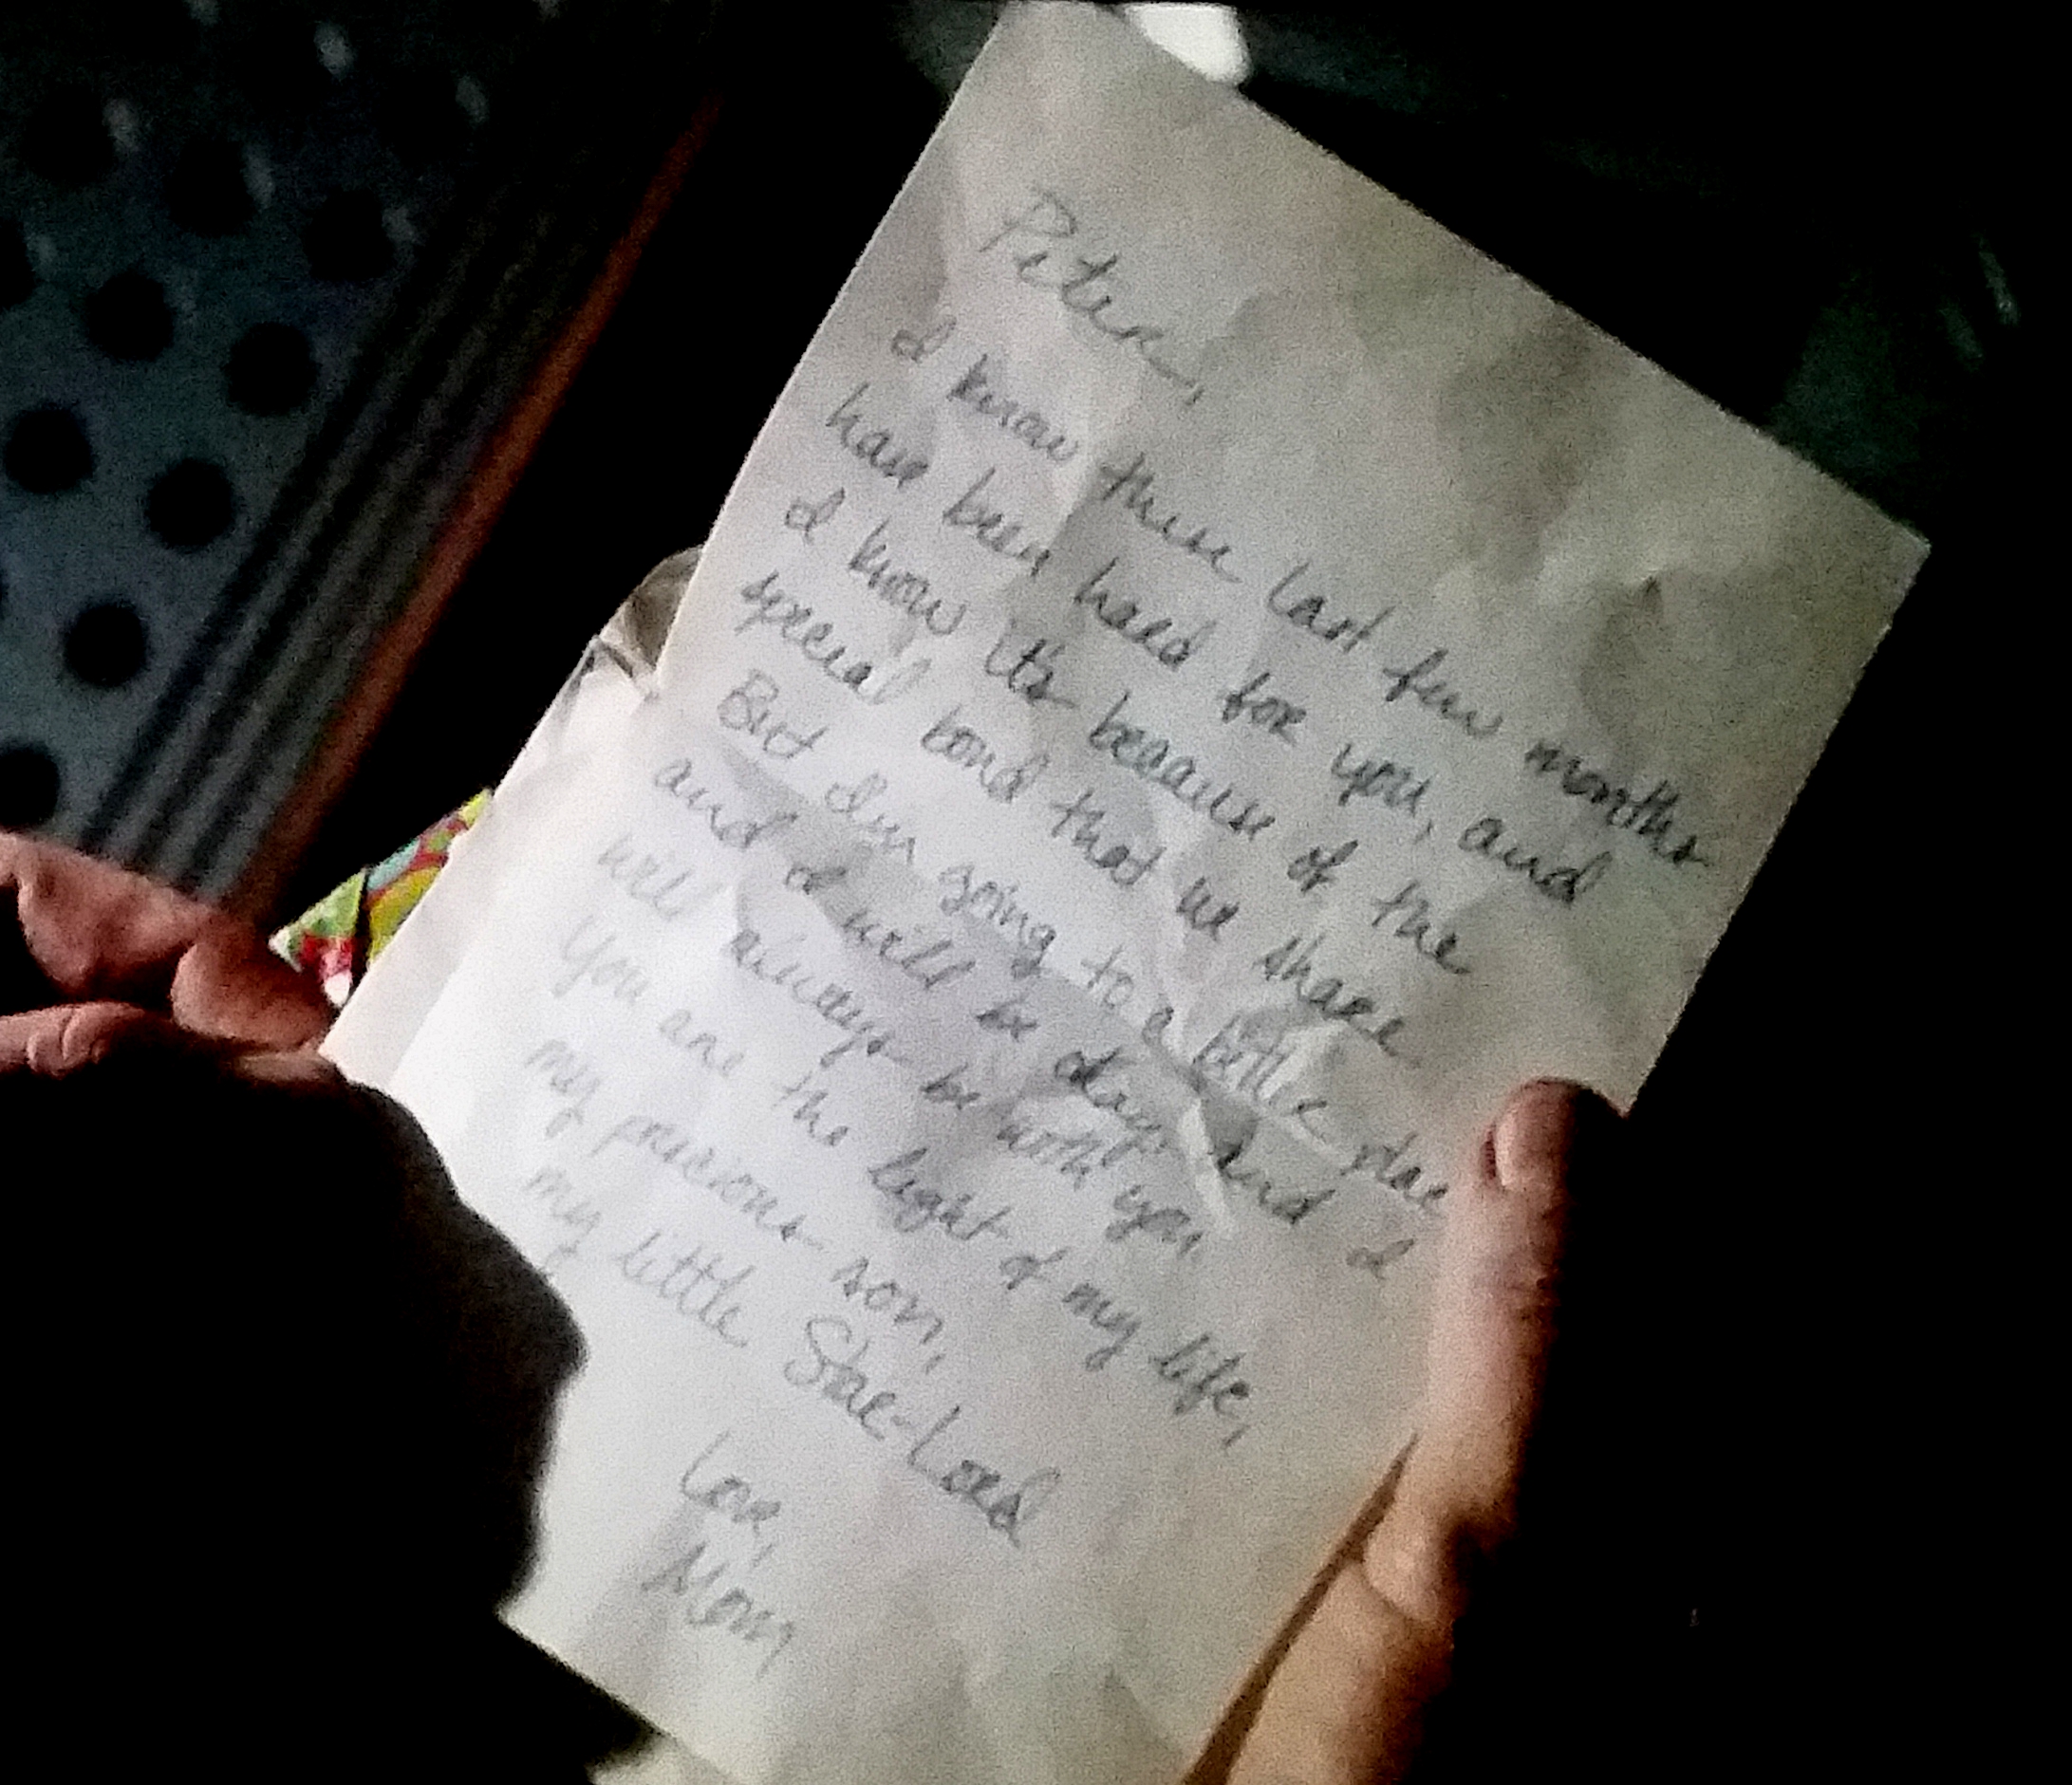 Peter,
I know these last few months
have been hard for you, and
I know it's because of the
special bond that we share
But I'm going to a better place
and I will be okay. And I
will always be with you,
You are the light of my life,
my precious son,
my little Star-Lord
Love,
Mom